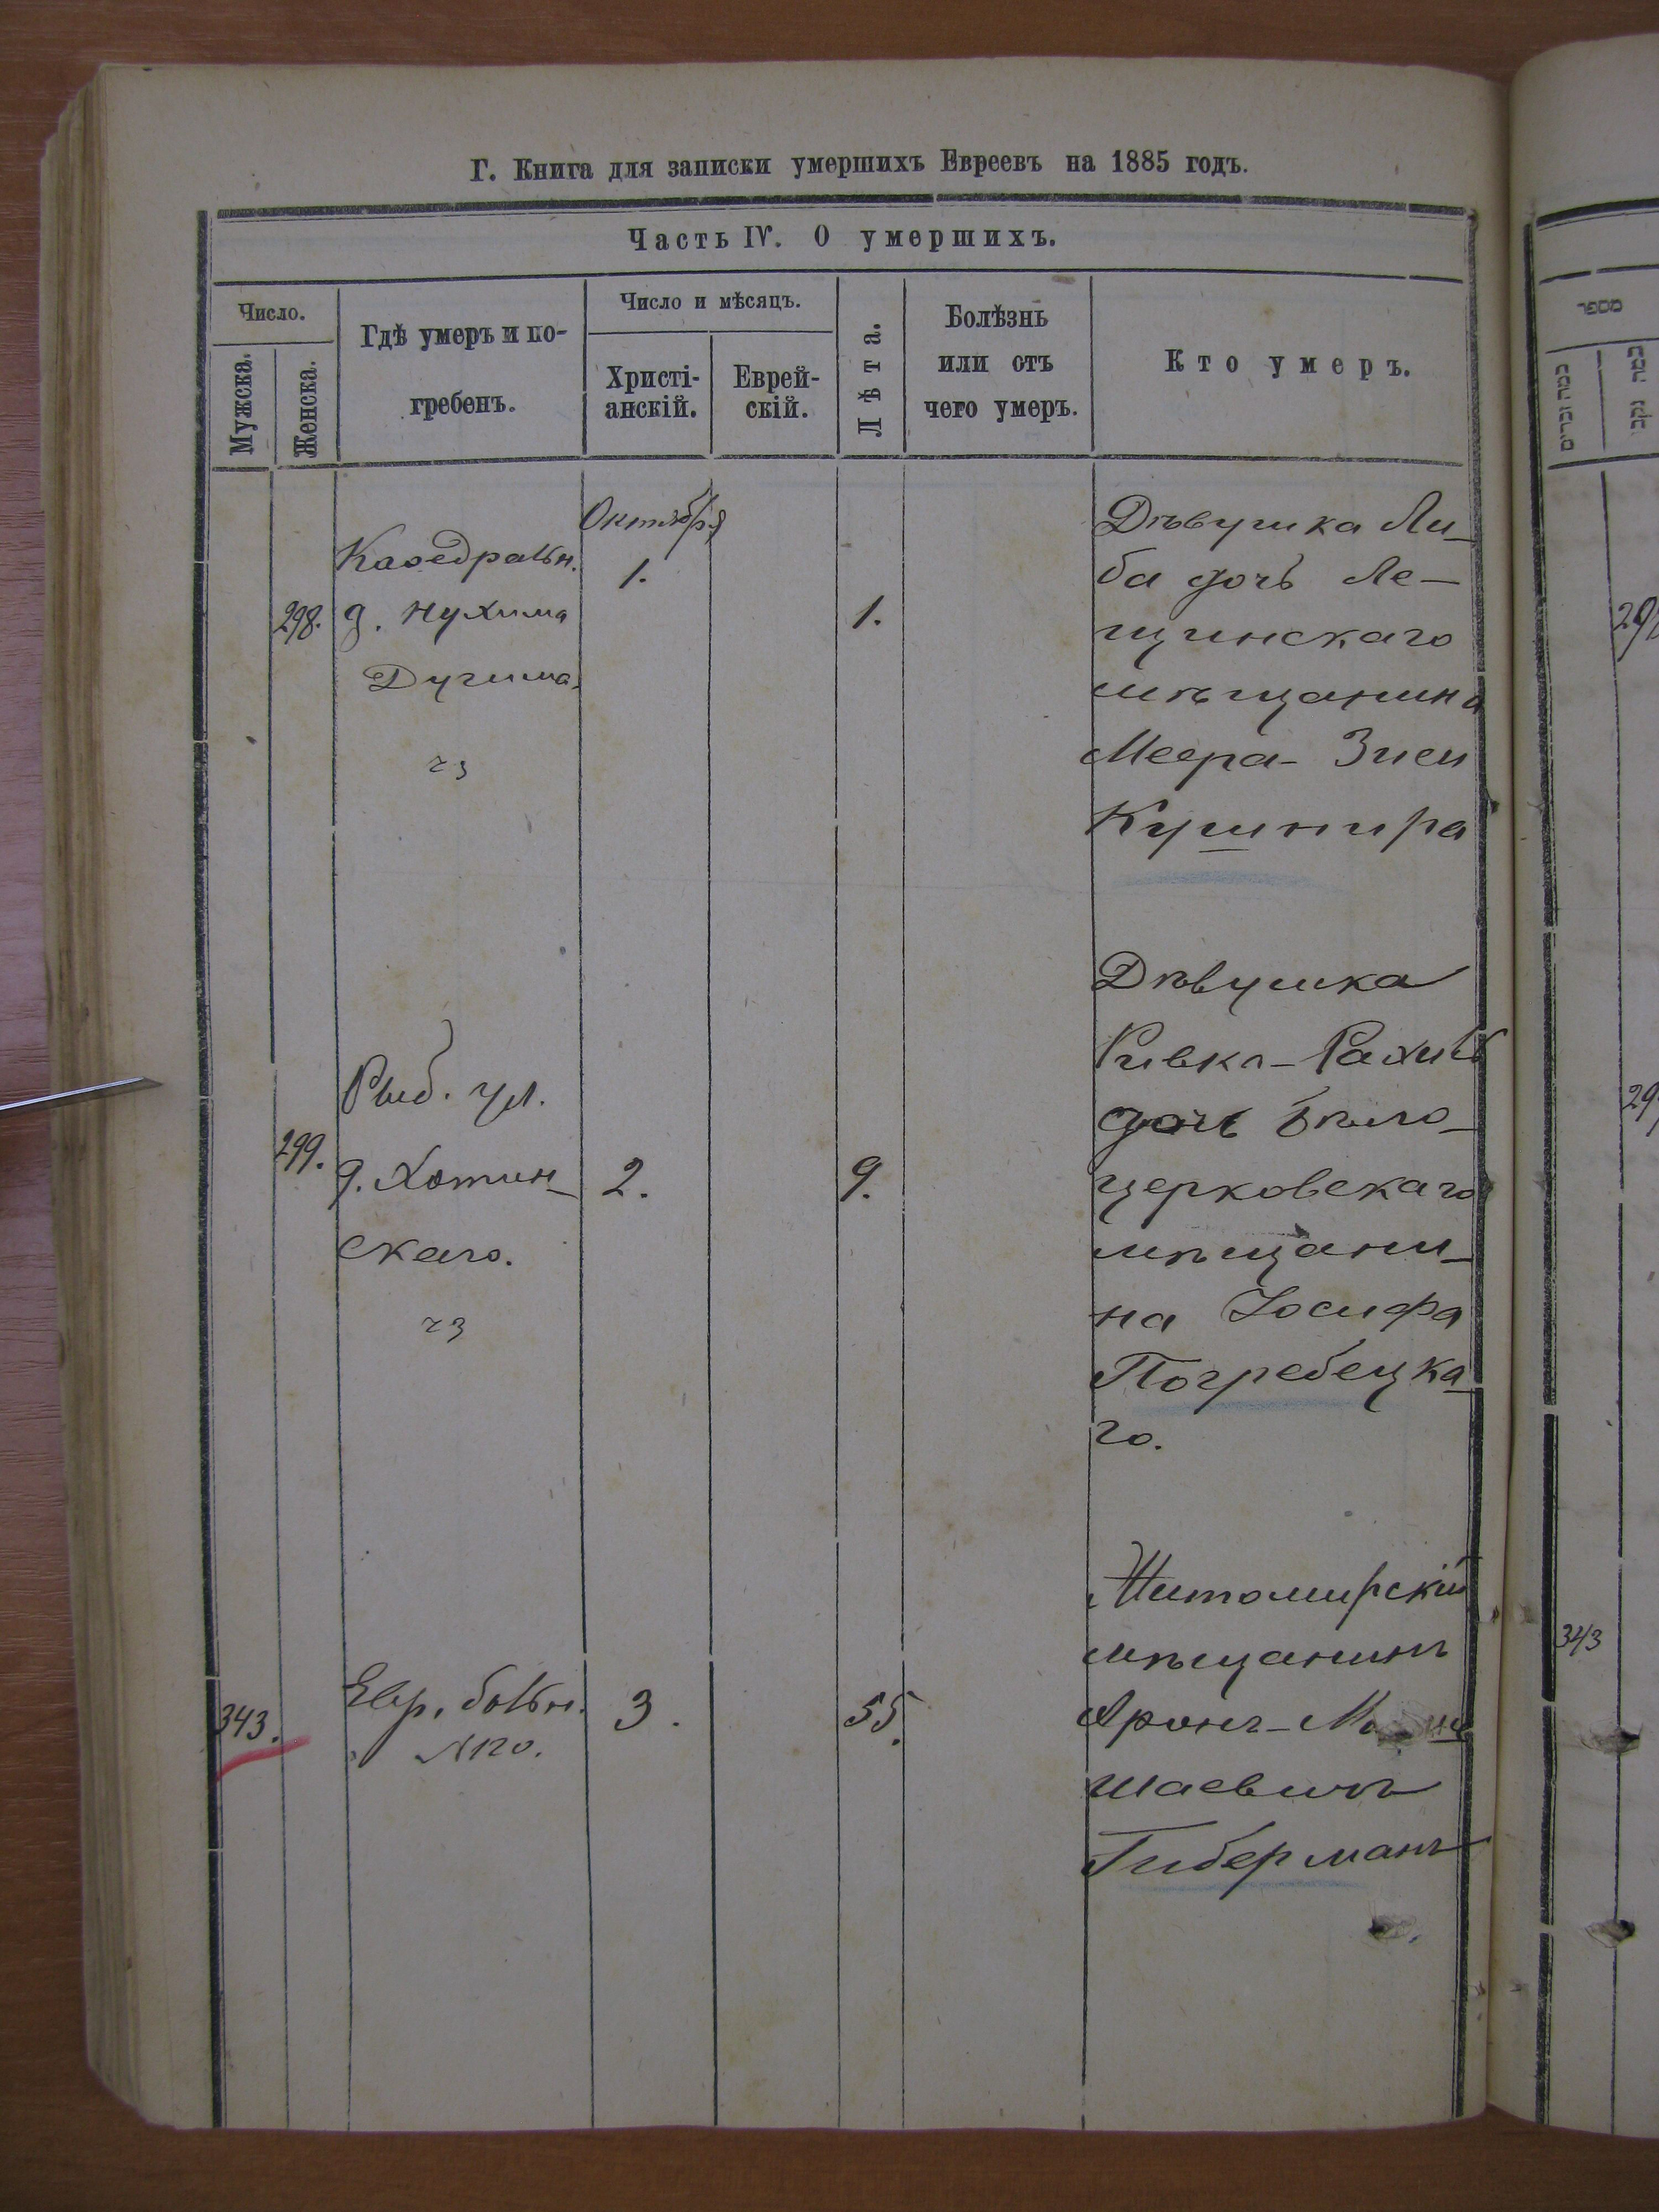 Г. Книга для записки умершихъ Евреевъ на 1885 годъ.
Часть IV. О умершихъ.
Число.
Мужска.
Женска.
Гдѣ умеръ и по-
гребенъ.
Число и мѣсяцъ.
Христі-
анскій.
Еврей-
скій.
Лѣта.
Болѣзнь
или отъ
чего умеръ.
Кто умеръ.
298.
Каѳедральн.
д. Нухима
Октября
1.
1.
Дѣвушка Ли-
ба дочь Ле-
щинскаго
мѣщанина
Меера-Зиси
Кушнира
299.
Рыб. ул.
д. Хотин-
скаго.
2.
9.
Дѣвушка
Ривка-Рахиль
дочь Бѣло-
церковскаго
мѣщани-
на Іосифа
Погребецка-
го.
343.
Евр. больн.
3.
55.
Житомирскій
мѣщанинъ
Аронъ-
шаевичъ
Гиберманъ
343